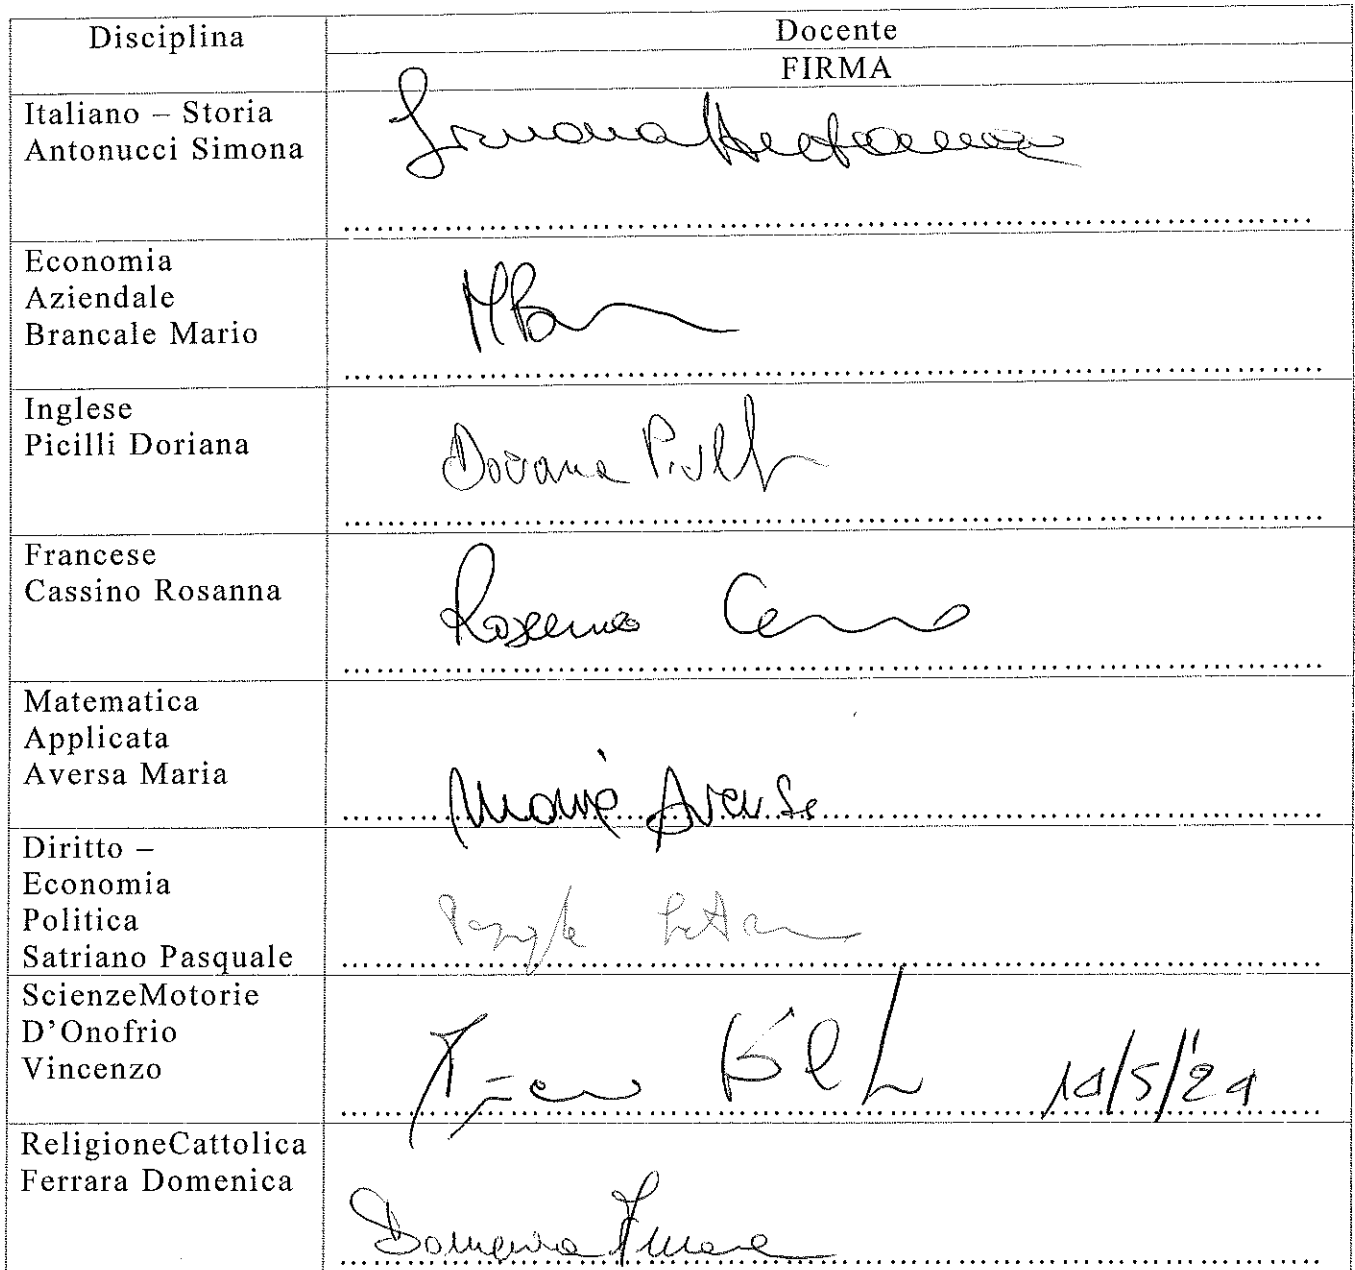 Disciplina
Docente
FIRMA
Italiano – Storia
Antonucci Simona
Simona Antonucci
Economia
Aziendale
Brancale Mario
Inglese
Picilli Doriana
Doriana Picilli
Francese
Cassino Rosanna
Rosanna Cassino
Matematica
Applicata
Aversa Maria
Maria Aversa
Diritto –
Economia
Politica
Satriano Pasquale
Pasquale
ScienzeMotorie
D’Onofrio
Vincenzo
ReligioneCattolica
Ferrara Domenica
Domenica Ferrara